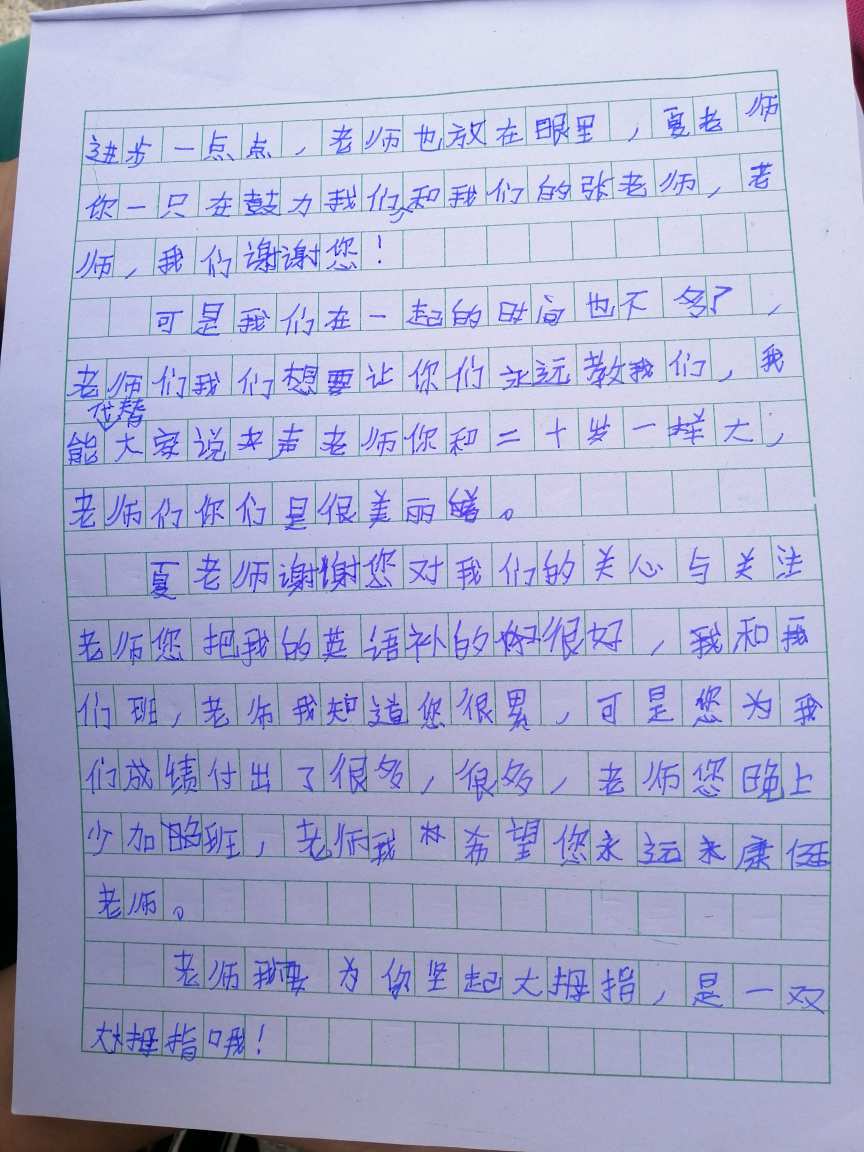 进步一点点，老师也放在眼里，夏老师
你一只在鼓力我们和我们的张老师，老
师，我们谢谢您！
可是我们在一起的时间也不多了，
老师们我们想要让你们永远教我们，我
代替
能大家说声老师你和二十岁一样大，
老师们你们是很美丽。
夏老师谢谢您对我们的关心与关注
老师您把我的英语补的很好，我和我
们班，老师我知道您很累，可是您为我
们成绩付出了很多，很多，老师您晚上
少加班，老师我希望您永远永康
老师。
老师我要为你坚起大拇指，是一双
大拇指哦！